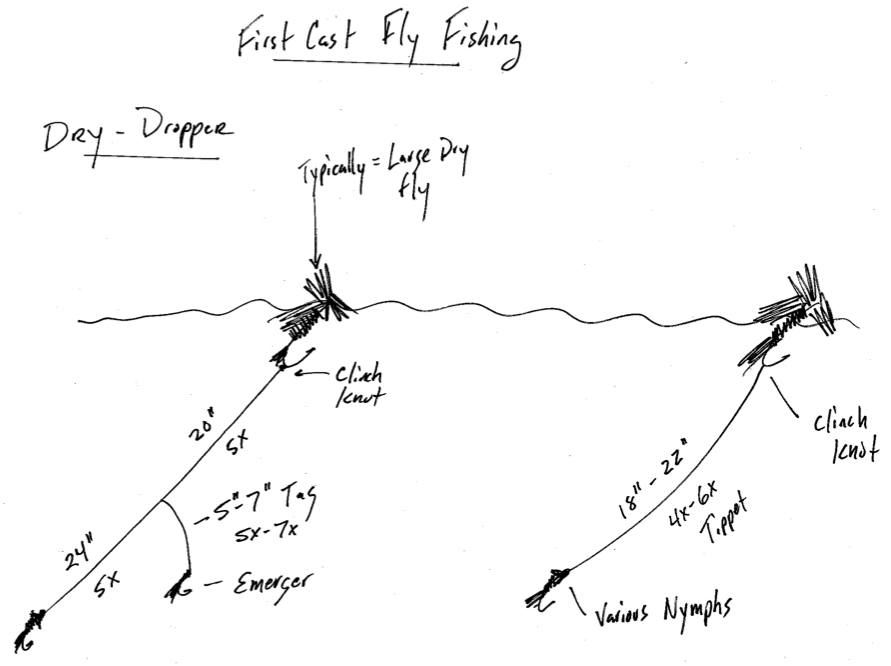 First Cast Fly Fishing
Dry - Dropper
Typically = Large Dry
fly
Clinch
Knot
20"
5x
5"-7" Tag
5x-7x
24"
5x
Emerger
Clinch
Knot
18" - 22"
4x-6x
Tippet
Various Nymphs